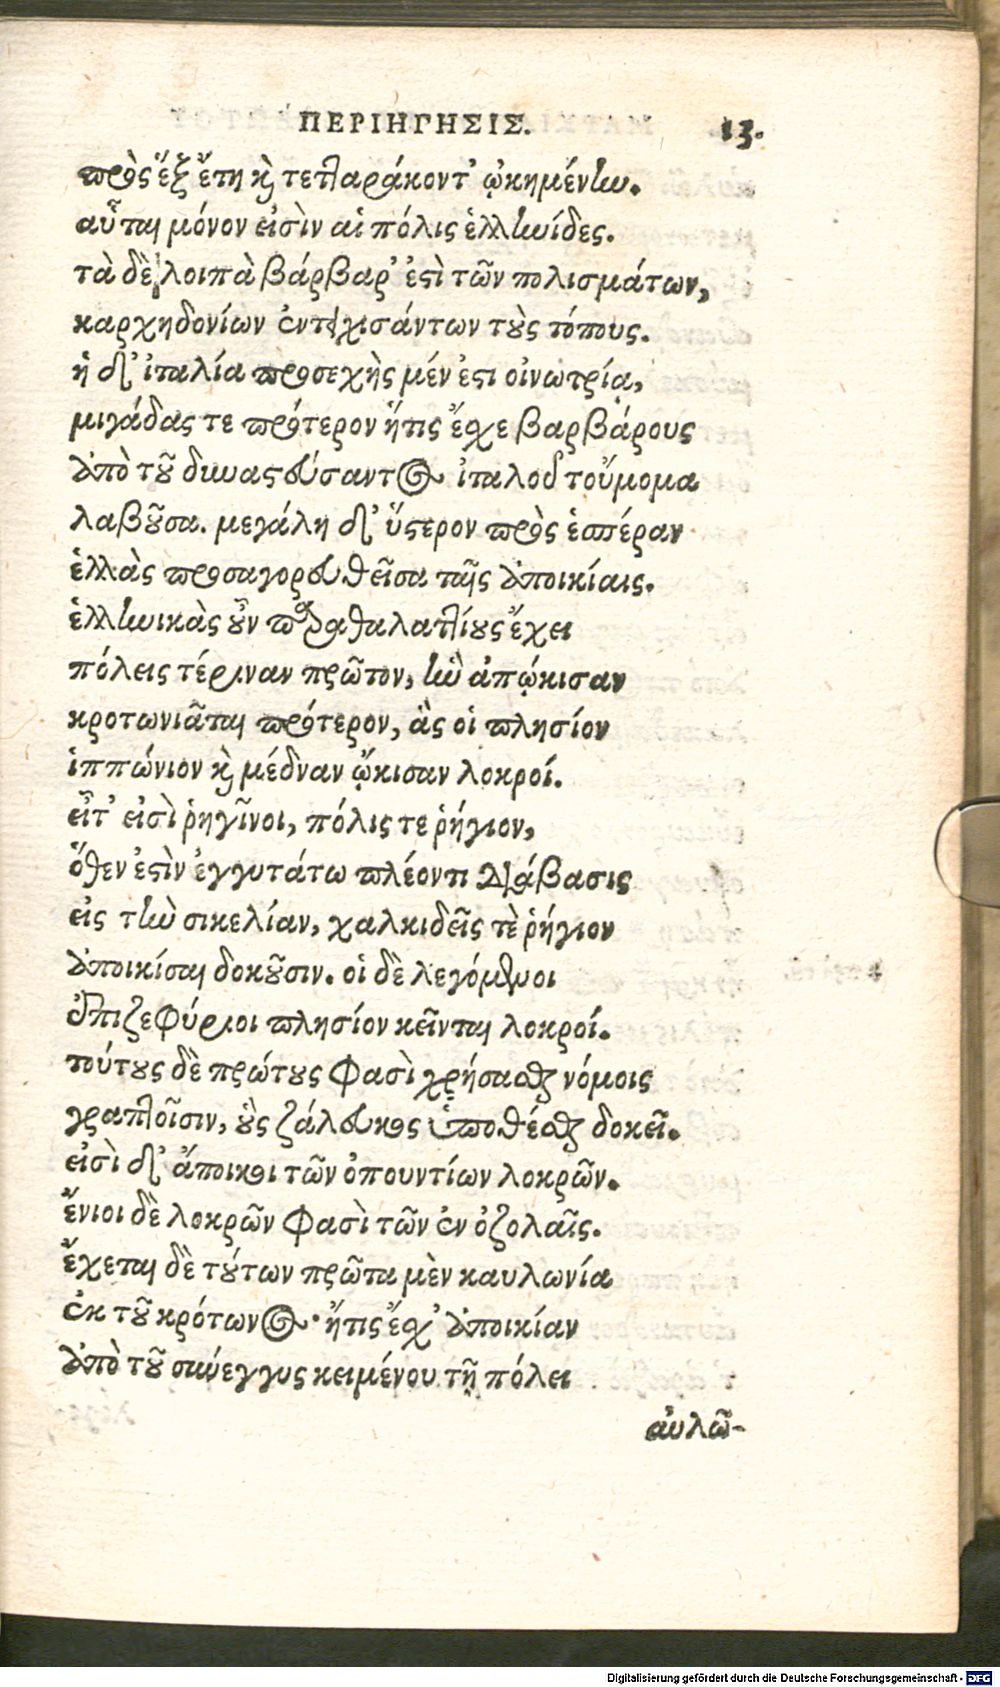 ΠΕΡΙΗΓΗΣΙΣ. 13.
πρὸς ἓξ ἔτη καὶ τετταράκοντ' ᾠκημένην.
αὗται μόνον εἰσὶν αἱ πόλις ἑλληνίδες.
τὰ δὲ λοιπὰ βάρβαρ' ἐστὶ τῶν πολισμάτων,
καρχηδονίων ἐντειχισάντων τοὺς τόπους.
ἡ δ' ἰταλία προσεχὴς μέν ἐστι οἰνωτρίᾳ,
μιγάδας τε πρότερον ἥτις ἔσχε βαρβάρους
ἀπὸ τοῦ δυναστεύσαντος ἰταλοῦ τοὔμομα
λαβοῦσα. μεγάλη δ' ὕστερον πρὸς ἑσπέραν
ἑλλὰς προσαγορευθεῖσα ταῖς ἀποικίαις.
ἑλληνικὰς οὖν παραθαλαττίους ἔχει
πόλεις τέριναν πρῶτον, ἣν ἀπῴκισαν
κροτωνιᾶται πρότερον, ἃς οἱ πλησίον
ἱππώνιον καὶ μέδναν ᾤκισαν λοκροί.
εἶτ' εἰσὶ ῥηγῖνοι, πόλις τε ῥήγιον,
ὅθεν ἐστὶν ἐγγυτάτω πλέοντι διάβασις
εἰς τὴν σικελίαν, χαλκιδεῖς τὲ ῥήγιον
ἀποικίσαι δοκοῦσιν. οἱ δὲ λεγόμενοι
ἐπιζεφύριοι πλησίον κεῖνται λοκροί.
τούτους δὲ πρώτους φασὶ χρήσασθαι νόμοις
γραπτοῖσιν, οὓς ζάλευκος ὑποθέσθαι δοκεῖ.
εἰσὶ δ' ἄποικοι τῶν ὀπουντίων λοκρῶν.
ἔνιοι δὲ λοκρῶν φασὶ τῶν ἐν ὀζολαῖς.
ἔχεται δὲ τούτων πρῶτα μὲν καυλωνία
ἐκ τοῦ κρότωνος· ἥτις ἔσχ' ἀποικίαν
ἀπὸ τοῦ σύνεγγυς κειμένου τῇ πόλει
αὐλῶ-
Digitalisierung gefördert durch die Deutsche Forschungsgemeinschaft - DFG